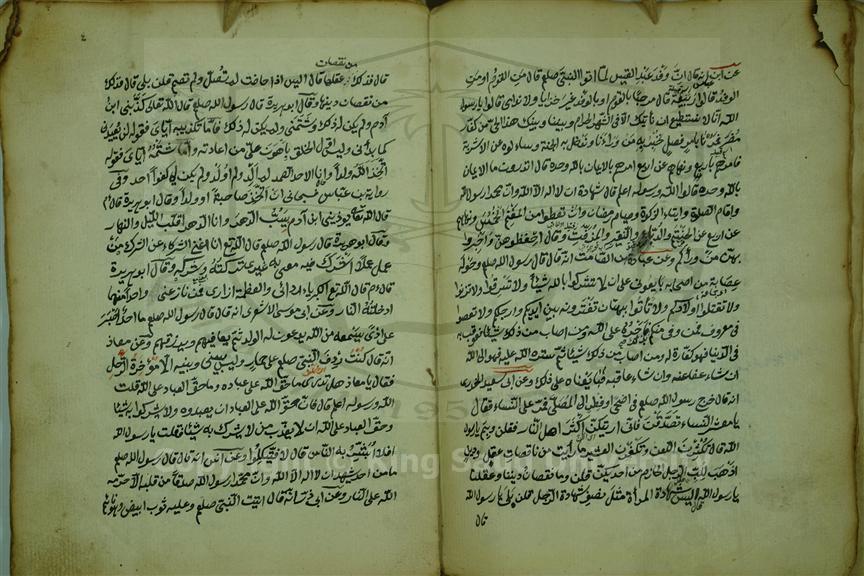 عن ابن عباس انه قال ان وفد عبد القيس لما اتوا النبي صلعم قال من القوم او من
الوفد قالوا ربيعة قال مرحبا بالقوم او بالوفد غير خزايا ولا ندامى قالوا يا رسول
الله انا لا نستطيع ان ناتيك الا في الشهر الحرام وبيننا وبينك هذا الحي من كفار
مضر فمرنا بامر فصل نخبر به من وراءنا وندخل به الجنة وسالوه عن الاشربة
فامرهم باربع ونهاهم عن اربع امرهم بالايمان بالله وحده قال اتدرون ما الايمان
بالله وحده قالوا الله ورسوله اعلم قال شهادة ان لا اله الا الله وان محمدا رسول الله
واقام الصلوة وايتاء الزكوة وصيام رمضان وان تعطوا من المغنم الخمس ونهاهم
عن اربع عن الحنتم والدباء والنقير والمزفت وقال احفظوهن واخبروا
بهن من وراءكم وعن عبادة بن الصامت انه قال قال رسول الله صلعم وحوله
عصابة من اصحابه بايعوني على ان لا تشركوا بالله شيئا ولا تسرقوا ولا تزنوا
ولا تقتلوا اولادكم ولا تاتوا ببهتان تفترونه بين ايديكم وارجلكم ولا تعصوا
في معروف فمن وفى منكم فاجره على الله ومن اصاب من ذلك شيئا فعوقب به
في الدنيا فهو كفارة له ومن اصاب من ذلك شيئا ثم ستره الله عليه فهو الى الله
ان شاء عفا عنه وان شاء عاقبه فبايعناه على ذلك وعن ابي سعيد الخدري
انه قال خرج رسول الله صلعم في اضحى او فطر الى المصلى فمر على النساء فقال
يا معشر النساء تصدقن فاني اريتكن اكثر اهل النار فقلن وبم يا رسول
الله قال تكثرن اللعن وتكفرن العشير ما رايت من ناقصات عقل ودين
اذهب للب الرجل الحازم من احديكن قلن وما نقصان ديننا وعقلنا
يا رسول الله قال اليس شهادة المراة مثل نصف شهادة الرجل قلن بلى يا رسول الله
قال
من نقصان
قال فذلك عقلها قال اليس اذا حاضت لم تصل ولم تصم قلن بلى قال فذلك
من نقصان دينها وقال ابو هريرة قال رسول الله صلعم قال الله تعالى كذبني ابن
ادم ولم يكن له ذلك وشتمني ولم يكن له ذلك فاما تكذيبه اياي فقوله لن يعيدني
كما بداني وليس اول الخلق باهون علي من اعادته واما شتمه اياي فقوله
اتخذ الله ولدا وانا الاحد الصمد لم الد ولم اولد ولم يكن لي كفوا احد وفي
رواية بن عباس فسبحاني ان اتخذ صاحبة او ولدا وقال ابو هريرة قال
قال الله تعالى يوذيني ابن ادم يسب الدهر وانا الدهر اقلب الليل والنهار
وقال ابو هريرة قال رسول الله صلعم قال الله تع انا اغنى الشركاء عن الشرك من
عمل عملا اشرك فيه معي غيري تركته وشركه وقال ابو هريرة
قال قال الله تع الكبرياء ردائي والعظمة ازاري فمن نازعني واحدا منهما
ادخلته النار وعن ابي موسى الاشعري انه قال قال رسول الله صلعم ما احد اصبر
على اذى يسمعه من الله يدعون له الولد ثم يعافيهم ويرزقهم وعن معاذ
انه قال كنت ردف النبي صلعم على حمار وليس بيني وبينه الا مؤخرة الرحل
فقال يا معاذ هل تدري ما حق الله على عباده وما حق العباد على الله قلت
الله ورسوله اعلم قال فان حق الله على العباد ان يعبدوه ولا يشركوا به شيئا
وحق العباد على الله ان لا يعذب من لا يشرك به شيئا فقلت يا رسول الله
افلا ابشر به الناس قال لا فيتكلوا وعن انس انه قال قال رسول الله صلعم
ما من احد شهد ان لا اله الا الله وان محمدا رسول الله صدقا من قلبه الا حرمه
الله على النار وعن ابي ذر انه قال اتيت النبي صلعم وعليه ثوب ابيض وهو نائم